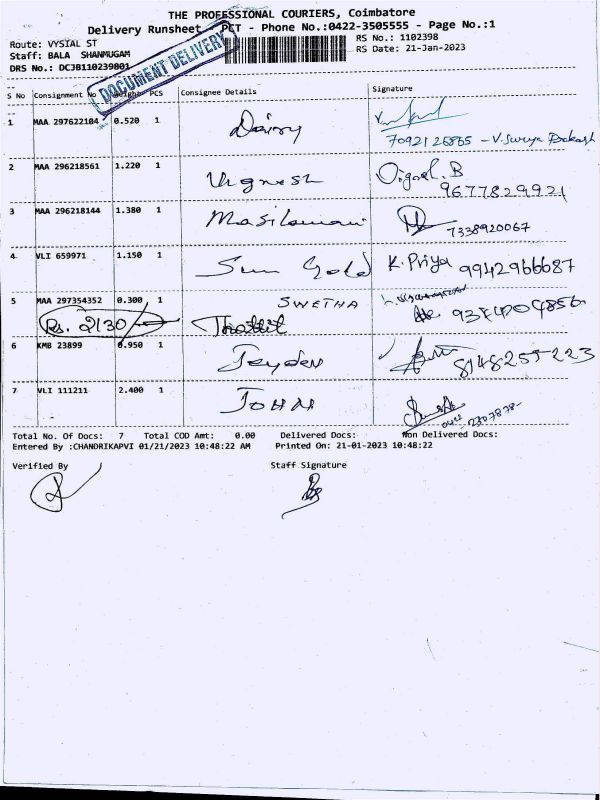 THE PROFESSIONAL COURIERS, Coimbatore
Delivery Runsheet PCT - Phone No.:0422-3505555 - Page No.:1
Route: VYSIAL ST
RS No.: 1102398
Staff: BALA SHANMUGAM
RS Date: 21-Jan-2023
DRS No.: DCJB110239801
DOCUMENT DELIVERY
S No Consignment No Weight PCS Consignee Details Signature
1 MAA 297622104 0.520 1 Daisy
7092126865 - V. Surya Prakash
2 MAA 296218561 1.220 1 Vignesh
9677829921
3 MAA 296218144 1.380 1 Masilamani
7338920067
4 VLI 659971 1.150 1 Sun Gold K. Priya 9942966687
5 MAA 297354352 0.300 1 SWETHA
Rs. 2130/-
6 KMB 23899 0.950 1 Jeyden
8148255223
7 VLI 111211 2.400 1 JOHN
Total No. Of Docs: 7 Total COD Amt: 0.00 Delivered Docs: Non Delivered Docs:
Entered By :CHANDRIKAPVI 01/21/2023 10:48:22 AM Printed On: 21-01-2023 10:48:22
Verified By Staff Signature